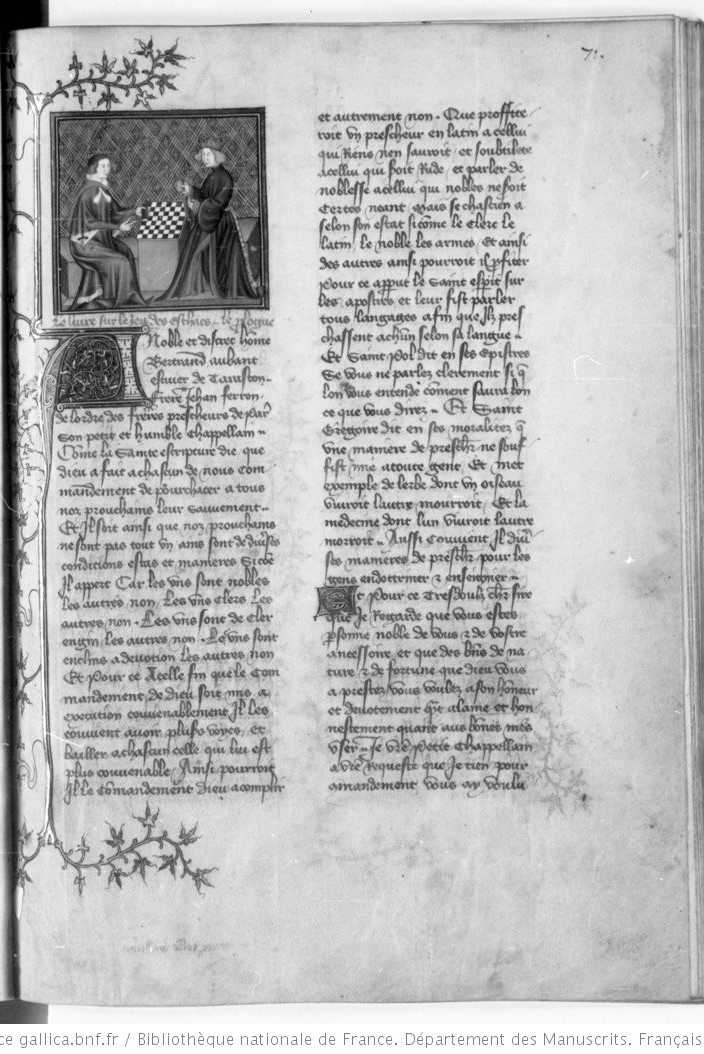 71.
Le livre sur le Jeu des eschacs. le prologue
A Noble et discret hom̃e
Bertrand aubant
escuier de Tarascon
frere Jehan ferron
de lordre des freres prescheurs de par̃
Son petit et humble Chappellam
Com̃e la Samte escripture die que
dieu a fait a chascun de nous com
mandement de pourchacer a tous
noz prouchams leur sauuement
Et Il soit ainsi que noz prouchams
ne sont pas tout vn ains sont de diũses
condicions estas et manieres Sicõe
Il appert Car les vns sont nobles
les autres non. Les vns Clers les
autres non. Les vns sont de cler
engin les autres non. Les vns sont
enclins a deuotion les autres non
Et Pour ce Acelle fin que le Com
mandement de dieu soit mis a
execution conuenablement Il les
conuient auoir plusr̃s voyes. et
bailler a chascun celle qui lui est
plus conuenable. Ainsi pourroit
Il le cõmandement Dieu acomplir
et autrement non. Que proffite
roit vn prescheur en latin a cellui
qui Riens nen sauroit. et soubtilete
Acellui qui soit Rude. et parler de
noblesse acellui qui nobles ne soit
Certes neant. Mais se chascun a
selon son estat si com̃e le Clerc le
latin. le noble les armes. Et ainsi
des autres ainsi pourroit Il p̃fiter
Pour ce apput le Saint esp̃it sur
les apostres et leur fist parler
tous langages afin que Ilz pres
chassent achũn selon sa langue
Et Saint Pol dit en ses Epistres
Se vous ne parlez clerement si q̃
lon vous entende cõment saura lon
ce que vous direz. Et Saint
Gregoire dit en ses moralitez q̃
vne maniere de presch̃r ne souf
fist mie a toute gent. Et met
exemple de lerbe dont vn oiseau
viuroit lautre mourroit. Et la
medecine dont lun viuroit lautre
morroit. Aussi Conuient Il diũ
ses manieres de presch̃r pour les
gens endottriner & enseigner
Et Pour ce Tresdoulz ch̃r sire
que Je Regarde que vous estes
p̃sonne noble de vous & de vostre
ancessoire. et que des biñs de na
ture & de fortune que dieu vous
a prestez. vous voulez a son honeur
et deuotement q̃nt a lame et hon
nestement quant aus bõnes meũs
vser. Je vr̃e Petit Chappellam
a vr̃e Requeste que Je tien pour
amandement. vous ay voulu
ce gallica.bnf.fr / Bibliothèque nationale de France. Département des Manuscrits. Français